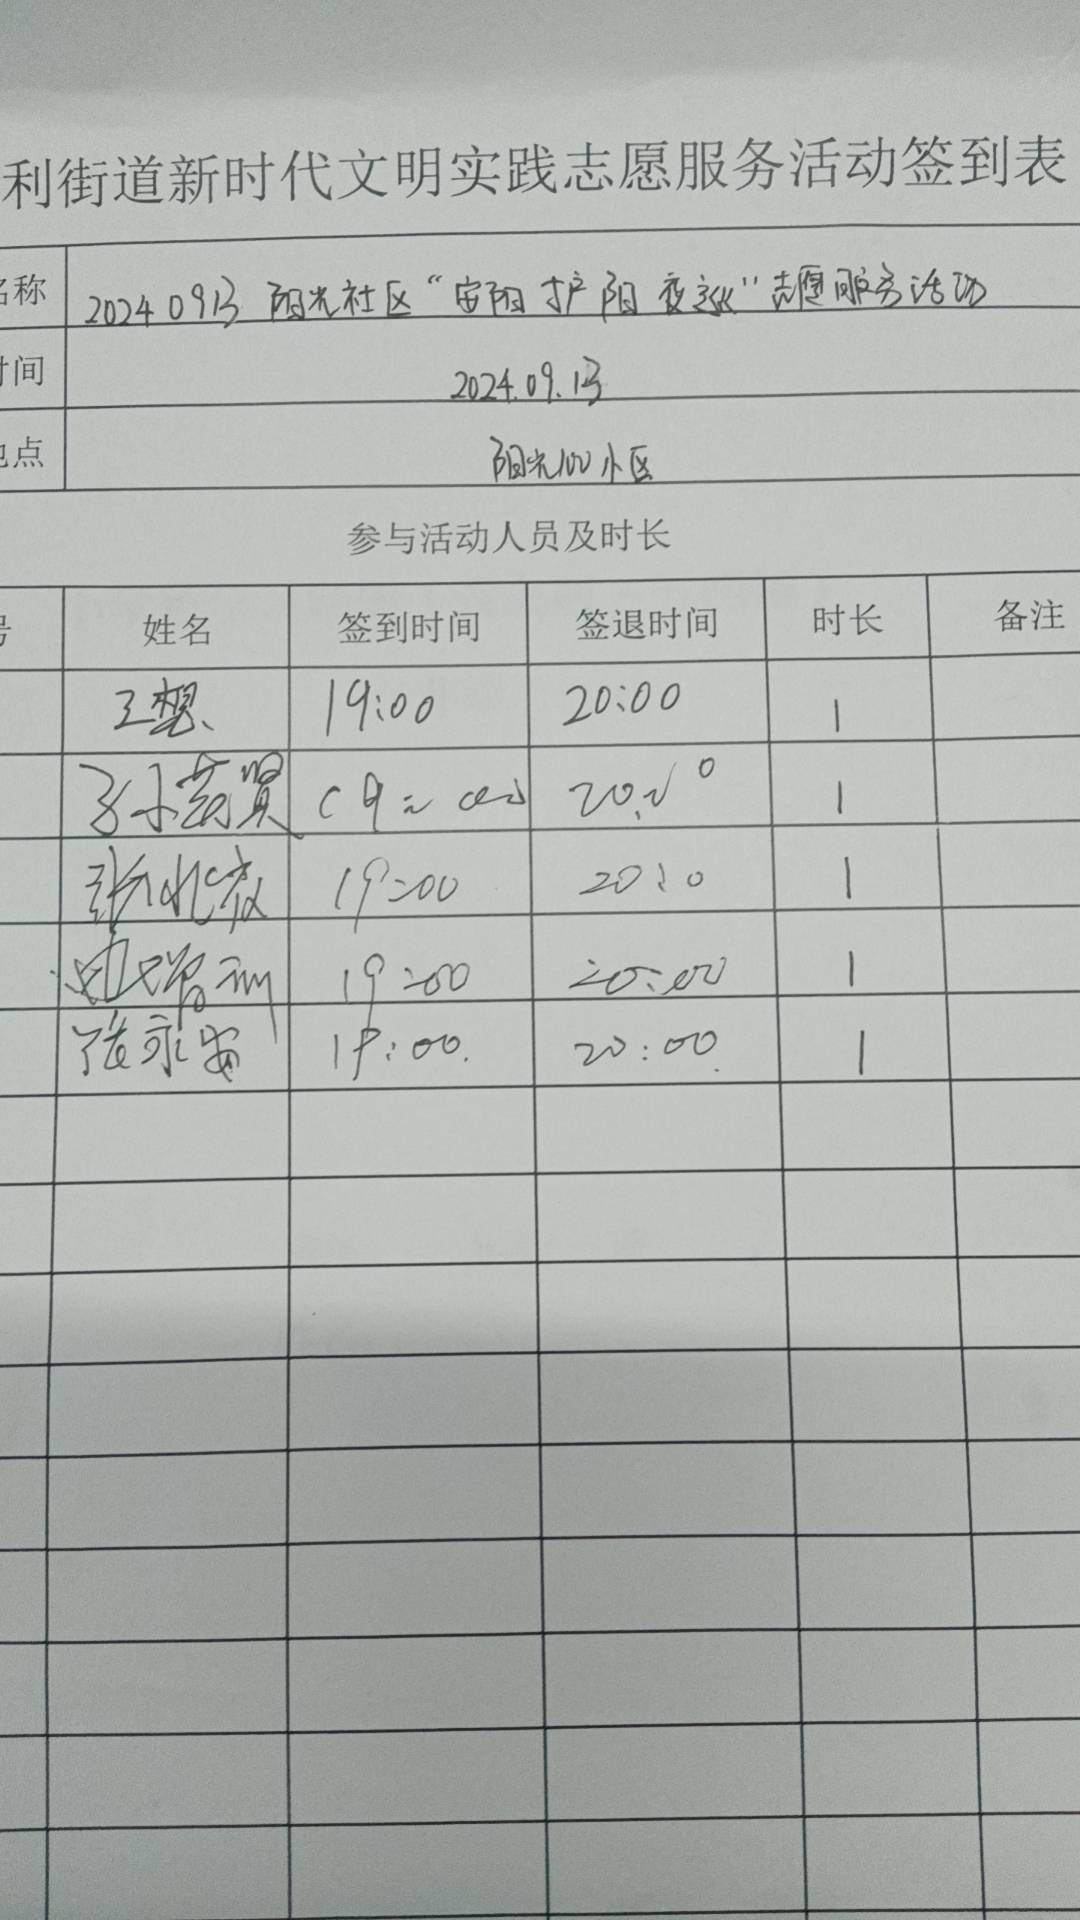 利街道新时代文明实践志愿服务活动签到表
名称 20240913 阳光社区“安阳护阳 夜巡”志愿服务活动
时间 2024.09.13
地点 阳光100小区
参与活动人员及时长
号 姓名 签到时间 签退时间 时长 备注
王想 19:00 20:00 1
19:00 20:00 1
张 19:00 20:0 1
19:00 20:00 1
张永安 19:00. 20:00. 1